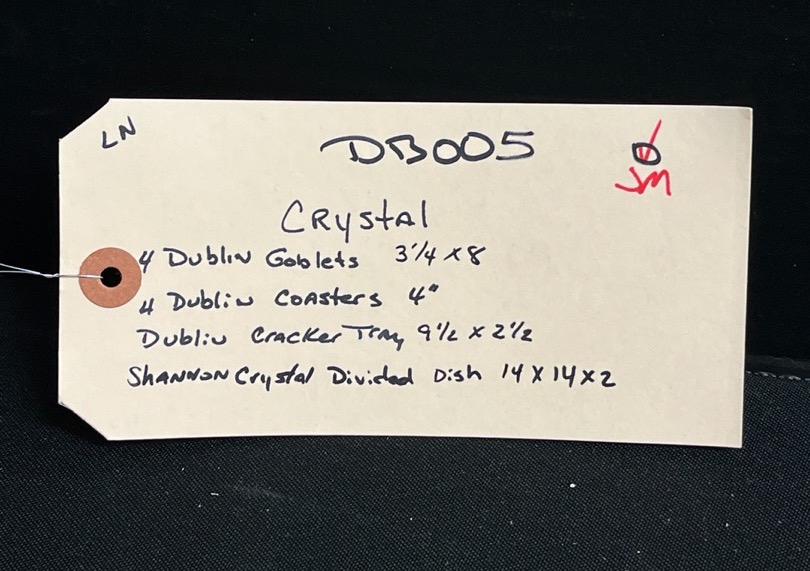 LN
DB005
JM
Crystal
4 Dublin Goblets 3 1/4 x 8
4 Dublin Coasters 4"
Dublin Cracker Tray 9 1/2 x 2 1/2
Shannon Crystal Divided Dish 14 x 14 x 2